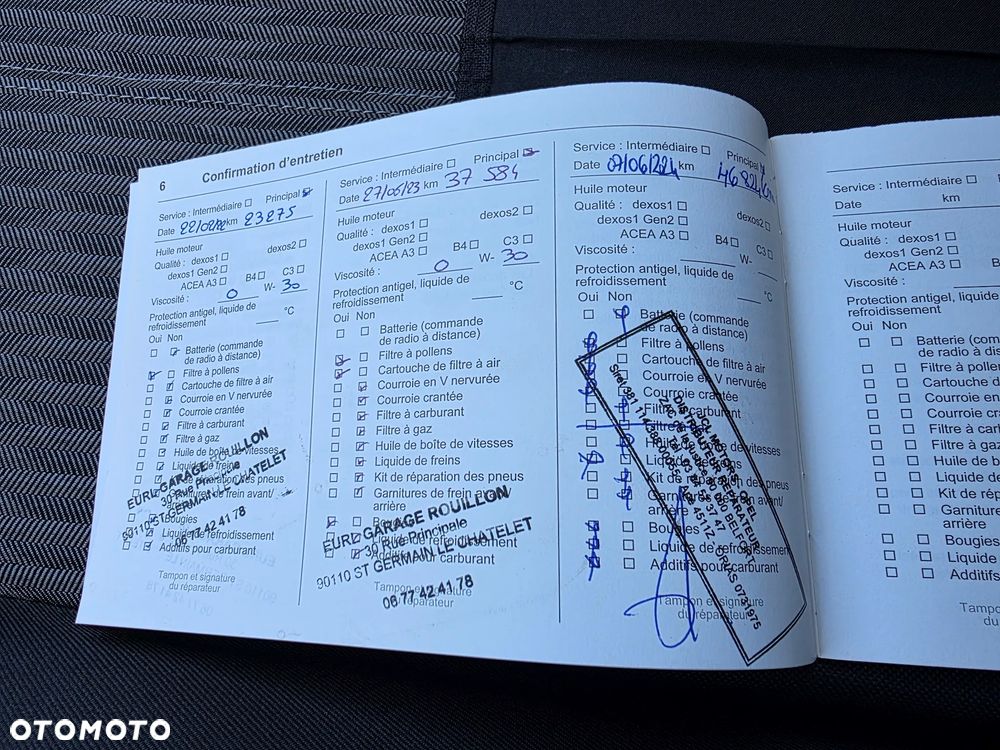 6 Confirmation d'entretien
Service : Intermédiaire Principal
Date 22/02/22 km 23275
Huile moteur
Qualité : dexos1 dexos2
dexos1 Gen2
ACEA A3 B4 C3
Viscosité : 0 W- 30
Protection antigel, liquide de
refroidissement °C
Oui Non
Batterie (commande
de radio à distance)
Filtre à pollens
Cartouche de filtre à air
Courroie en V nervurée
Courroie crantée
Filtre à carburant
Filtre à gaz
Huile de boîte de vitesses
Liquide de freins
Kit de réparation des pneus
Garnitures de frein avant/
Bougies
Liquide de refroidissement
Additifs pour carburant
EURL GARAGE ROUILLON
30 Rue Principale
90110 ST GERMAIN LE CHATELET
06 77 42 41 78
Tampon et signature
du réparateur
Service : Intermédiaire Principal
Date 27/05/23 km 37 584
Huile moteur
Qualité : dexos1 dexos2
dexos1 Gen2
ACEA A3 B4 C3
Viscosité : 0 W- 30
Protection antigel, liquide de
refroidissement °C
Oui Non
Batterie (commande
de radio à distance)
Filtre à pollens
Cartouche de filtre à air
Courroie en V nervurée
Courroie crantée
Filtre à carburant
Filtre à gaz
Huile de boîte de vitesses
Liquide de freins
Kit de réparation des pneus
Garnitures de frein avant/
arrière
Bougies
Liquide de refroidissement
Additifs pour carburant
EURL GARAGE ROUILLON
30 Rue Principale
90110 ST GERMAIN LE CHATELET
06 77 42 41 78
Tampon et signature
du réparateur
Service : Intermédiaire Principal
Date 07/06/224 km 46824 km
Huile moteur
Qualité : dexos1 dexos2
dexos1 Gen2
ACEA A3 B4 C3
Viscosité : W-
Protection antigel, liquide de
refroidissement °C
Oui Non
Batterie (commande
de radio à distance)
Filtre à pollens
Cartouche de filtre à air
Courroie en V nervurée
Courroie crantée
Filtre à carburant
Filtre à gaz
Huile de boîte de vitesses
Liquide de freins
Kit de réparation des pneus
Garnitures de frein avant/
arrière
Bougies
Liquide de refroidissement
Additifs pour carburant
OPEL
DISTRIBUTEUR REPARATEUR
BELFORT
Tampon et signature
du réparateur
Service : Intermédiaire
Date km
Huile moteur
Qualité : dexos1
dexos1 Gen2
ACEA A3
Viscosité :
Protection antigel, liquide
refroidissement
Oui Non
Batterie (com
de radio à dis
Filtre à pollens
Cartouche de
Courroie en
Courroie cran
Filtre à carb
Filtre à gaz
Huile de b
Liquide de
Kit de rép
Garniture
arrière
Bougies
Liquide
Additifs
Tampo
du
OTOMOTO